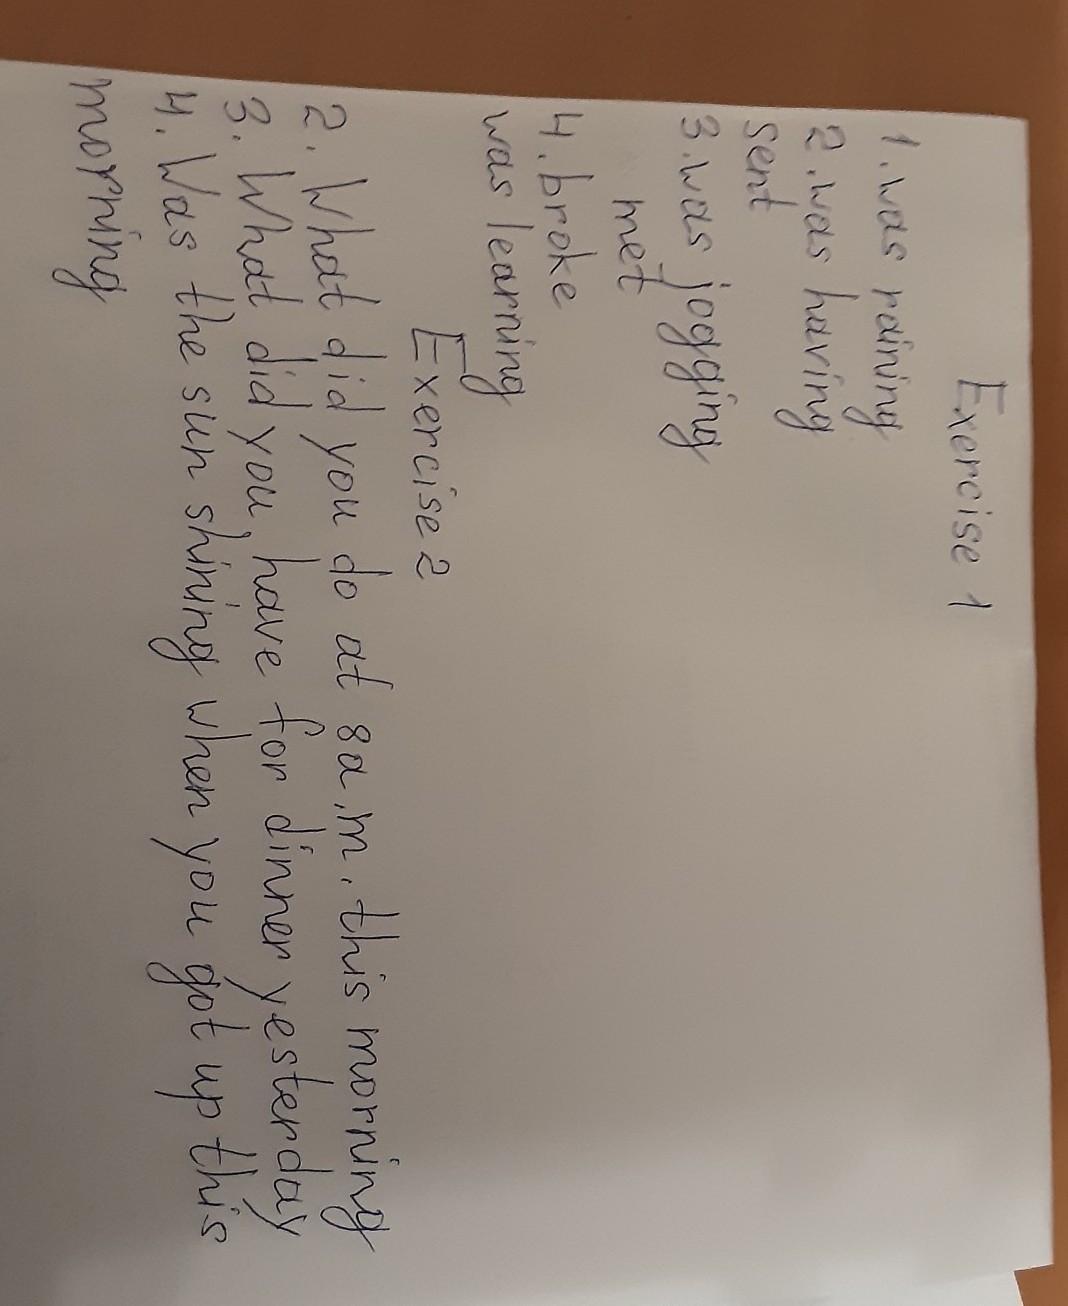 Exercise 1
1. was raining
2. was having
sent
3. was jogging
met
4. broke
was learning
Exercise 2
2. What did you do at 8a.m. this morning
3. What did you have for dinner yesterday
4. Was the sun shining when you got up this
morning